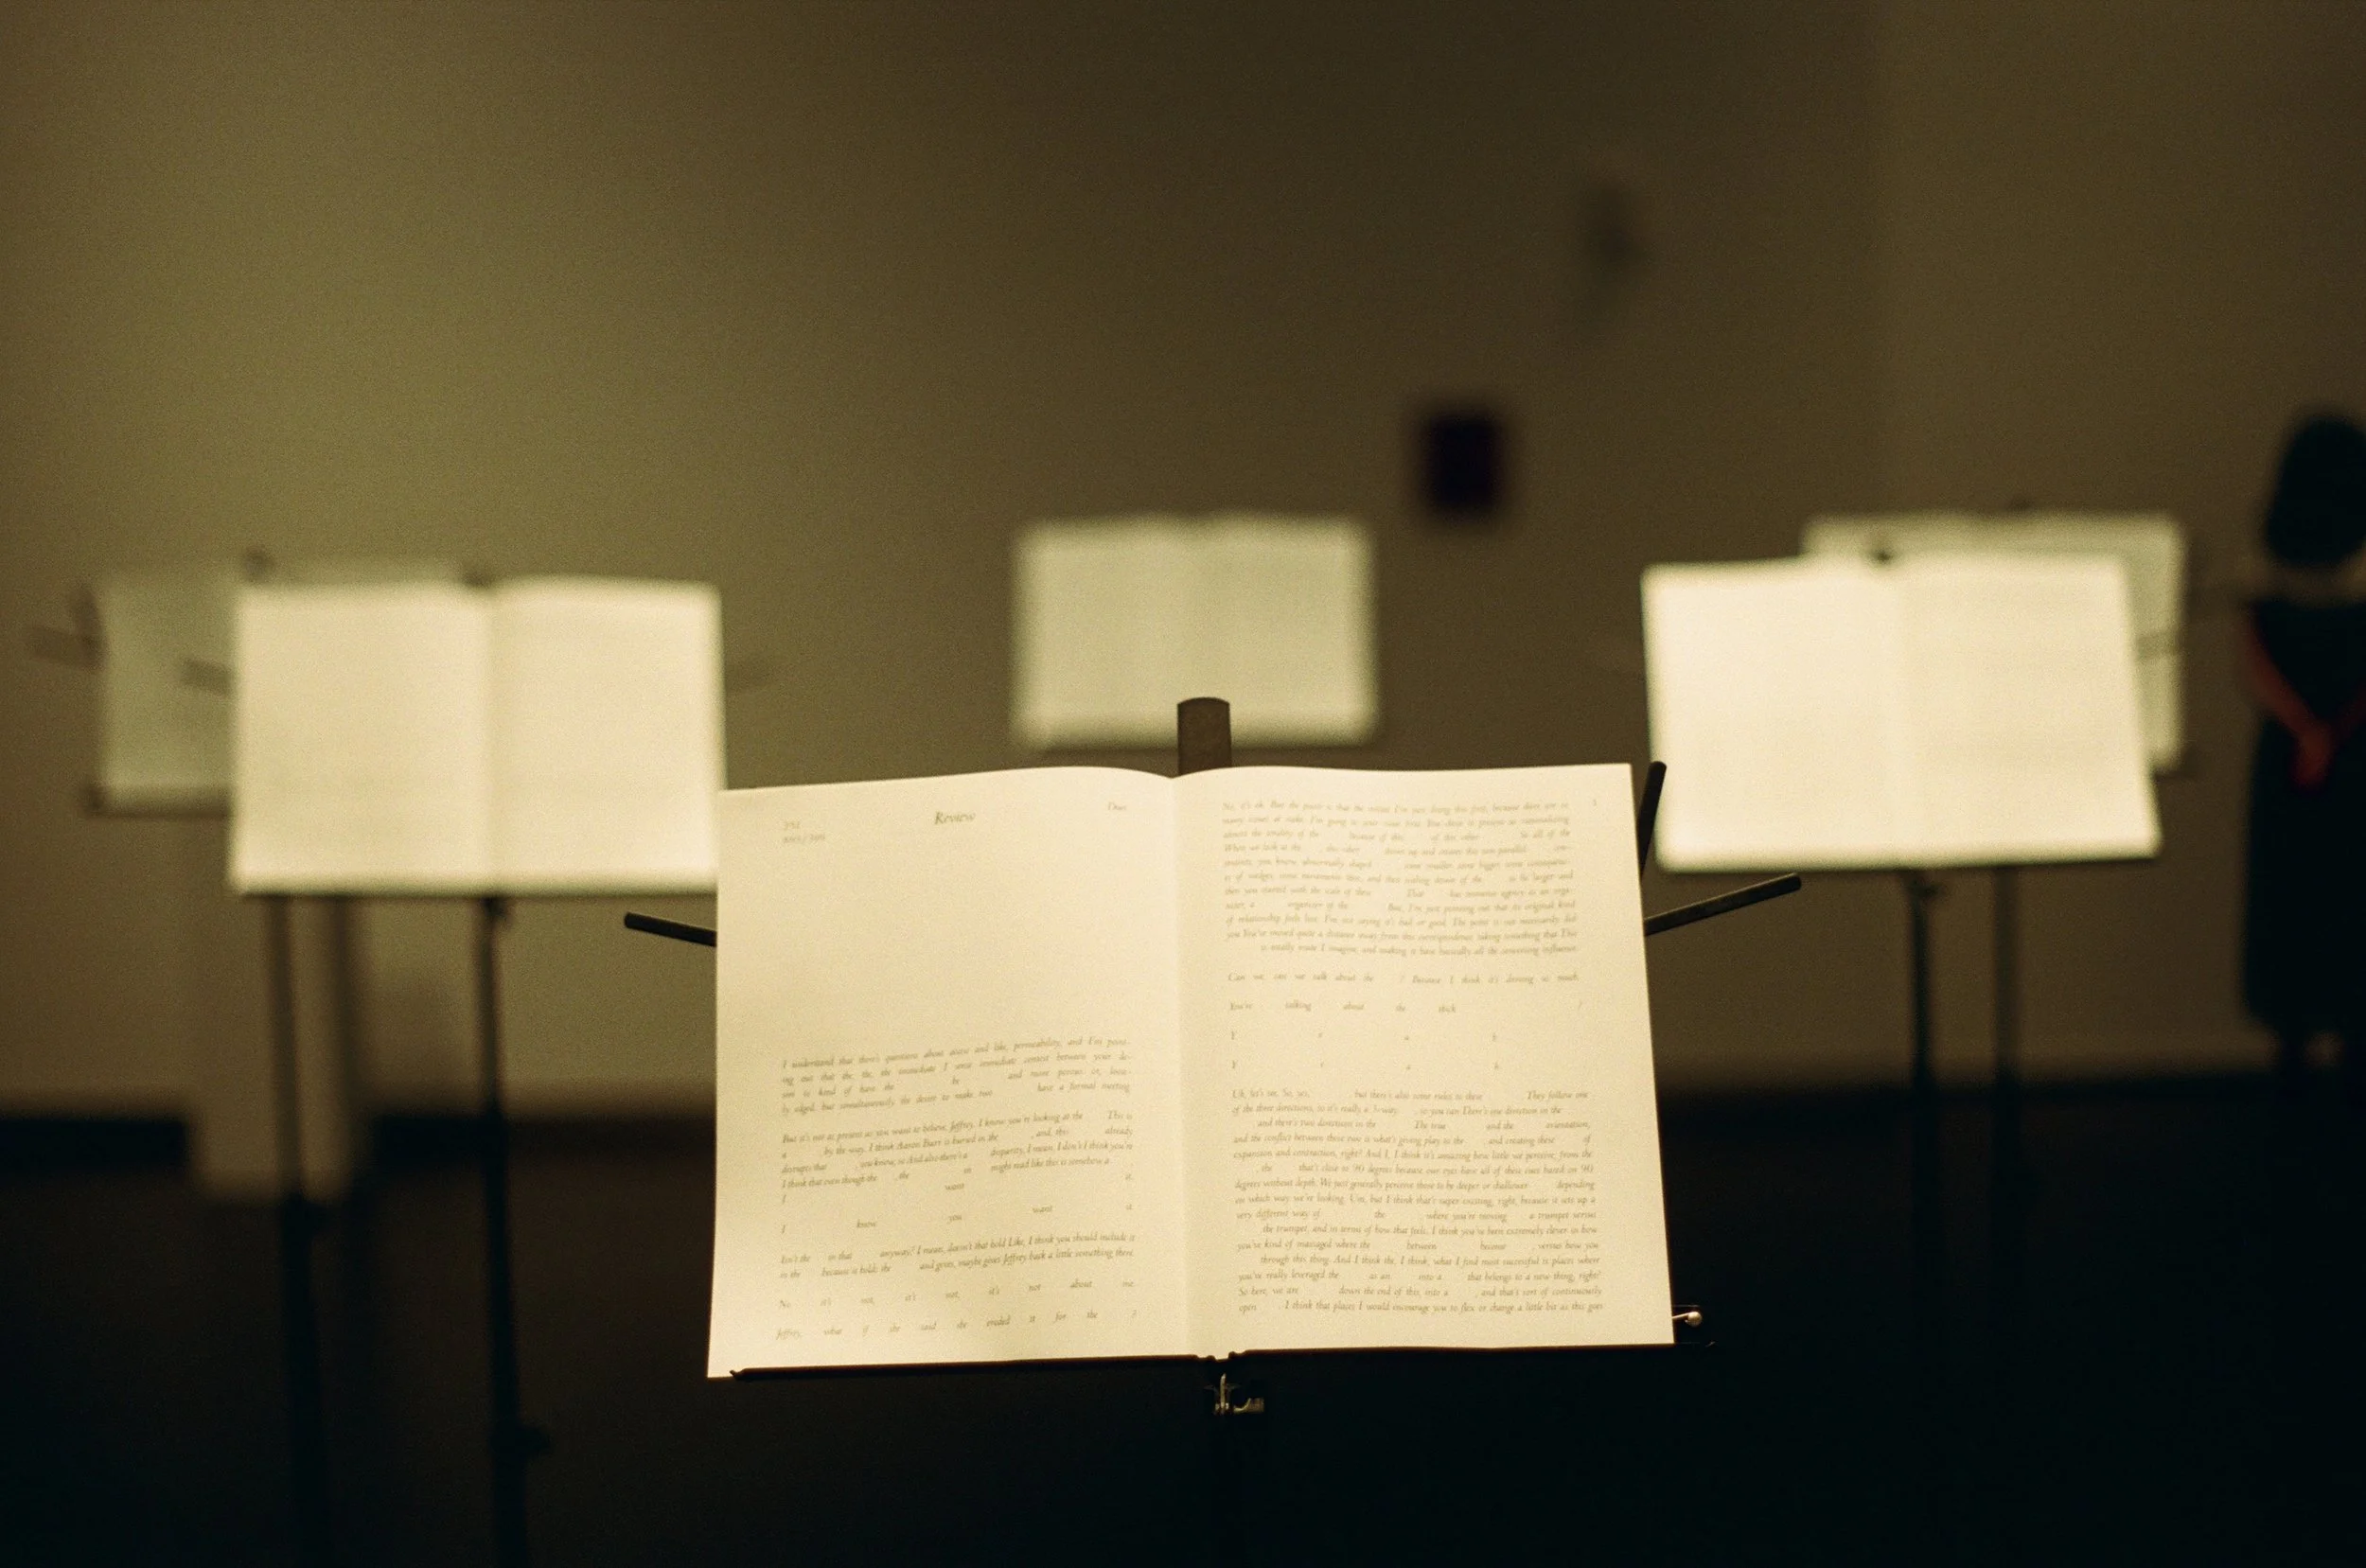 Review
Duet
I understand that there's questions about access and like, permeability, and I'm point-
ing out that the, the, the immediate, I sense immediate contest between your de-
sire to kind of have the be and more porous in, loca-
ly edged, but simultaneously the desire to make two have a formal meeting
But it's not as present as you want to believe, Jeffrey. I know you're looking at the This is
a by the way. I think Aaron Burr is buried in the , and, this already
disrupts that , you know, so And also there's a disparity, I mean, I don't I think you're
I think that even though the , the in might read like this is somehow a
I want it.
I know you want it
Isn't the in that anyway? I mean, doesn't that hold Like, I think you should include it
in the because it holds the and gives, maybe gives Jeffrey back a little something there.
No it's not, it's not, it's not about me.
Jeffrey, what if she said she ended it for the ?
1
No, it's ok. But the point is that the minute I'm just doing this first, because there are so
many views at night, I'm going to
almost the tonality of the because of this of this other So all of the
When we look at the , the other down up and creates this non-parallel con-
you know, abnormally shaped some smaller, some bigger, some
of wedges, some movements then, and then scaling down of the to be larger and
then you started with the scale of these That has immense agency as an orga-
nizer, a organizer of the But, I'm just pointing out that its original kind
of relationship feels lost. I'm not saying it's bad or good. The point is not necessarily did
you You've moved quite a distance away from this correspondence taking something that This
is really made I imagine, and making it have basically all the remaining influence
Can we, can we talk about the ? Because I think it's driving so much
You're talking about the thick ?
Y e a h
Y e a h
Uh, let's see. So, yes, but there's also some rules to these They follow one
of the three directions, so it's really a 3-way , so you can There's one direction in the
, and there's two directions in the The true and the orientation,
and the conflict between those two is what's giving play to the and creating these of
expansion and contraction, right? And I, I think it's amazing how little we perceive, from the
, the that's close to 90 degrees because our eyes have all of these cues based on 90
degrees without depth. We just generally perceive those to be deeper or shallower depending
on which way we're looking. Um, but I think that's super exciting, right, because it sets up a
very different way of the , where you're moving a trumpet versus
the trumpet, and in terms of how that feels. I think you've been extremely clever in how
you've kind of managed where the between become , versus how you
through this thing. And I think the, I think, what I find most successful is places where
you're really leveraged the as an into a that belongs to a new thing, right?
So here, we are down the end of this, into a , and that's sort of continuously
open I think that places I would encourage you to flex or change a little bit as this goes